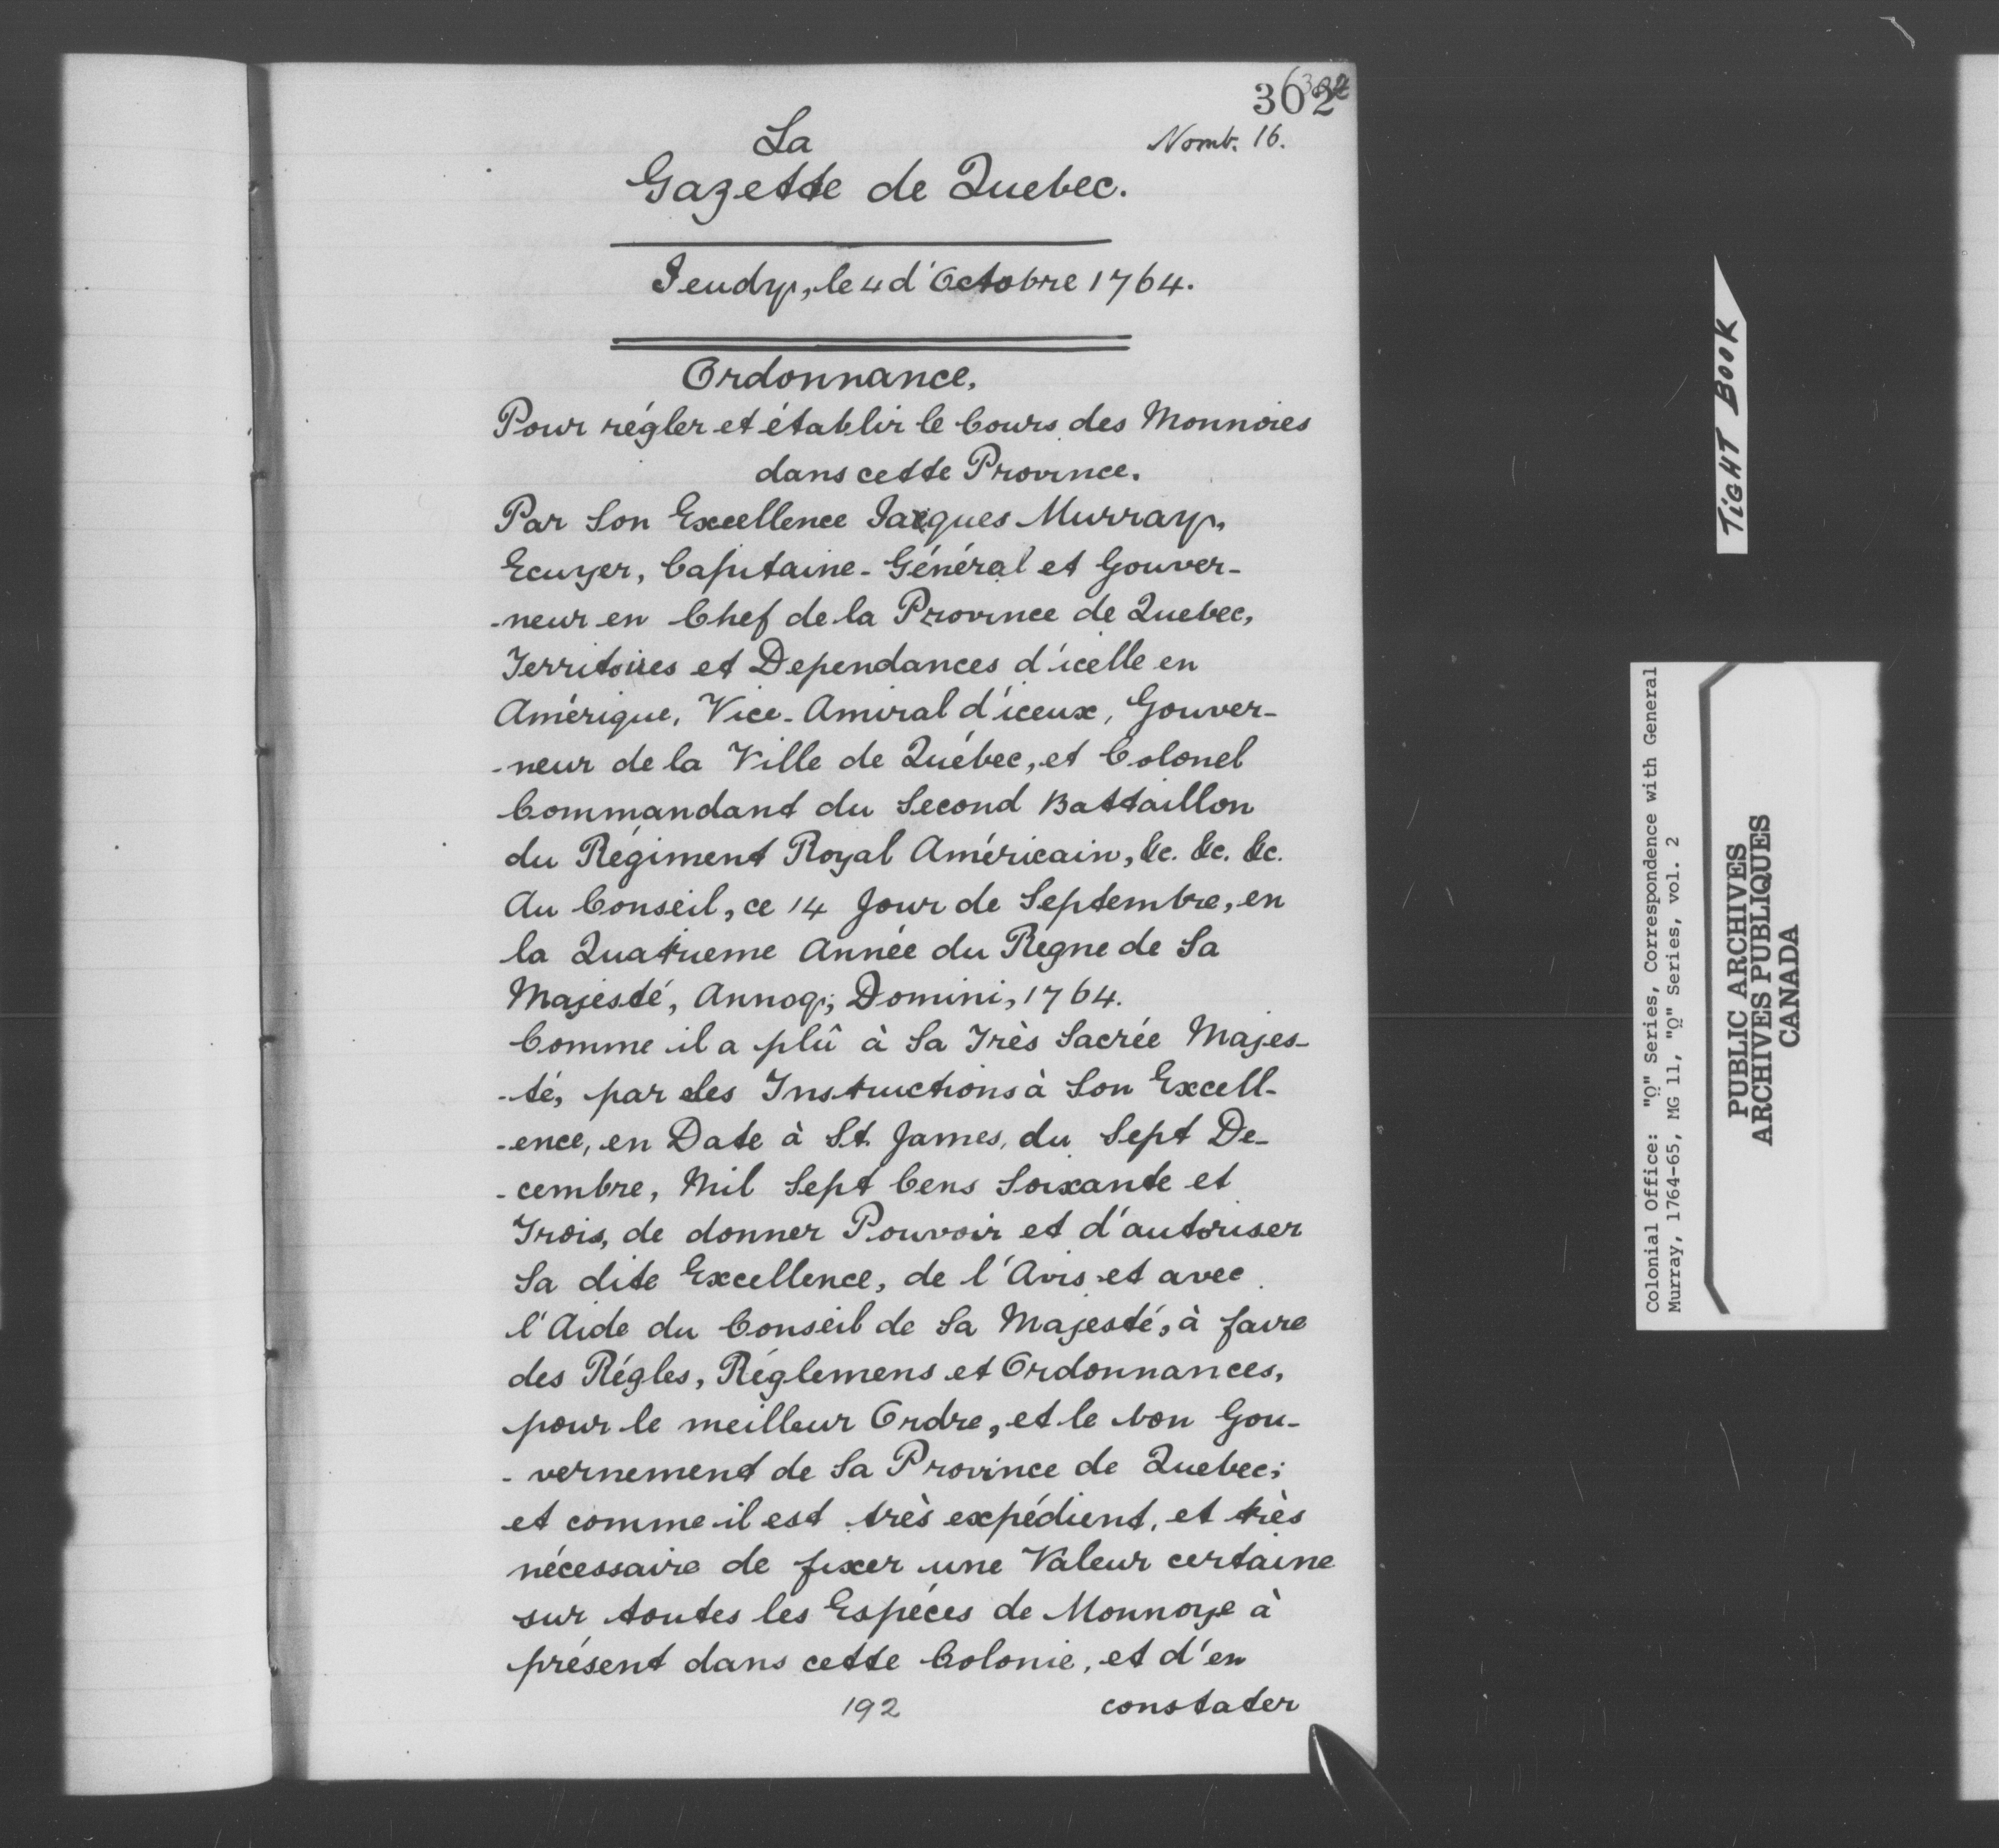 302
Nomb. 16.
La
Gazette de Quebec.
Jeudy, le 4 d'Octobre 1764.
Ordonnance,
Pour régler et établir le Cours des Monnoies
dans cette Province.
Par Son Excellence Jacques Murray,
Ecuyer, Capitaine-Général et Gouver-
-neur en Chef de la Province de Quebec,
Territoires et Dependances d'icelle en
Amérique, Vice-Amiral d'iceux, Gouver-
-neur de la Ville de Québec, et Colonel
Commandant du Second Battaillon
du Régiment Royal Américain, &c. &c. &c.
Au Conseil, ce 14 Jour de Septembre, en
la Quatrieme Année du Regne de Sa
Majesté, Annoq; Domini, 1764.
Comme il a plû à Sa Très Sacrée Majes-
-té, par des Instructions à Son Excell-
-ence, en Date à St. James, du Sept De-
-cembre, Mil Sept Cens Soixante et
Trois, de donner Pouvoir et d'autoriser
Sa dite Excellence, de l'Avis et avec
l'Aide du Conseil de Sa Majesté, à faire
des Régles, Réglemens et Ordonnances,
pour le meilleur Ordre, et le bon Gou-
-vernement de Sa Province de Quebec;
et comme il est très expédient, et très
nécessaire de fixer une Valeur certaine
sur toutes les Espéces de Monnoye à
présent dans cette Colonie, et d'en
192
constater
TIGHT BOOK
Colonial Office: "Q" Series, Correspondence with General
Murray, 1764-65, MG 11, "Q" Series, vol. 2
PUBLIC ARCHIVES
ARCHIVES PUBLIQUES
CANADA